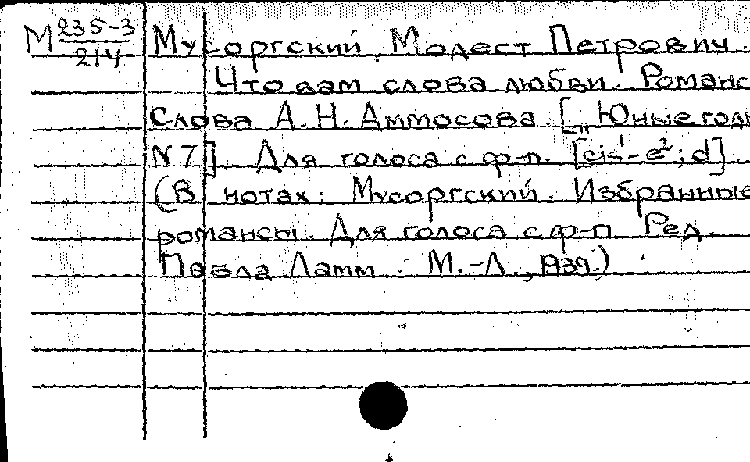 М 235-3/214 Мусоргский, Модест Петрович.
Что вам слова любви. Романс
Слова А. Н. Аммосова. [„Юные годы"
N 7]. Для голоса с ф-п. [cis¹-e²; d]
(В нотах: Мусоргский. Избранные
романсы. Для голоса с ф-п. Ред.
Павла Ламм. М.-Л., 1939.)